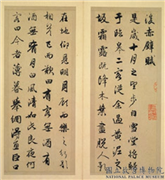 後赤壁賦
是歲十月之望步自雪堂將
于臨皋二客從余過黃泥
坂霜露既降木葉盡脫人
在地仰見明月顧而樂之行歌
相答已而歎曰有客
月白風清
客曰今者薄暮舉網得魚巨口
國立故宮博物院
NATIONAL PALACE MUSEUM